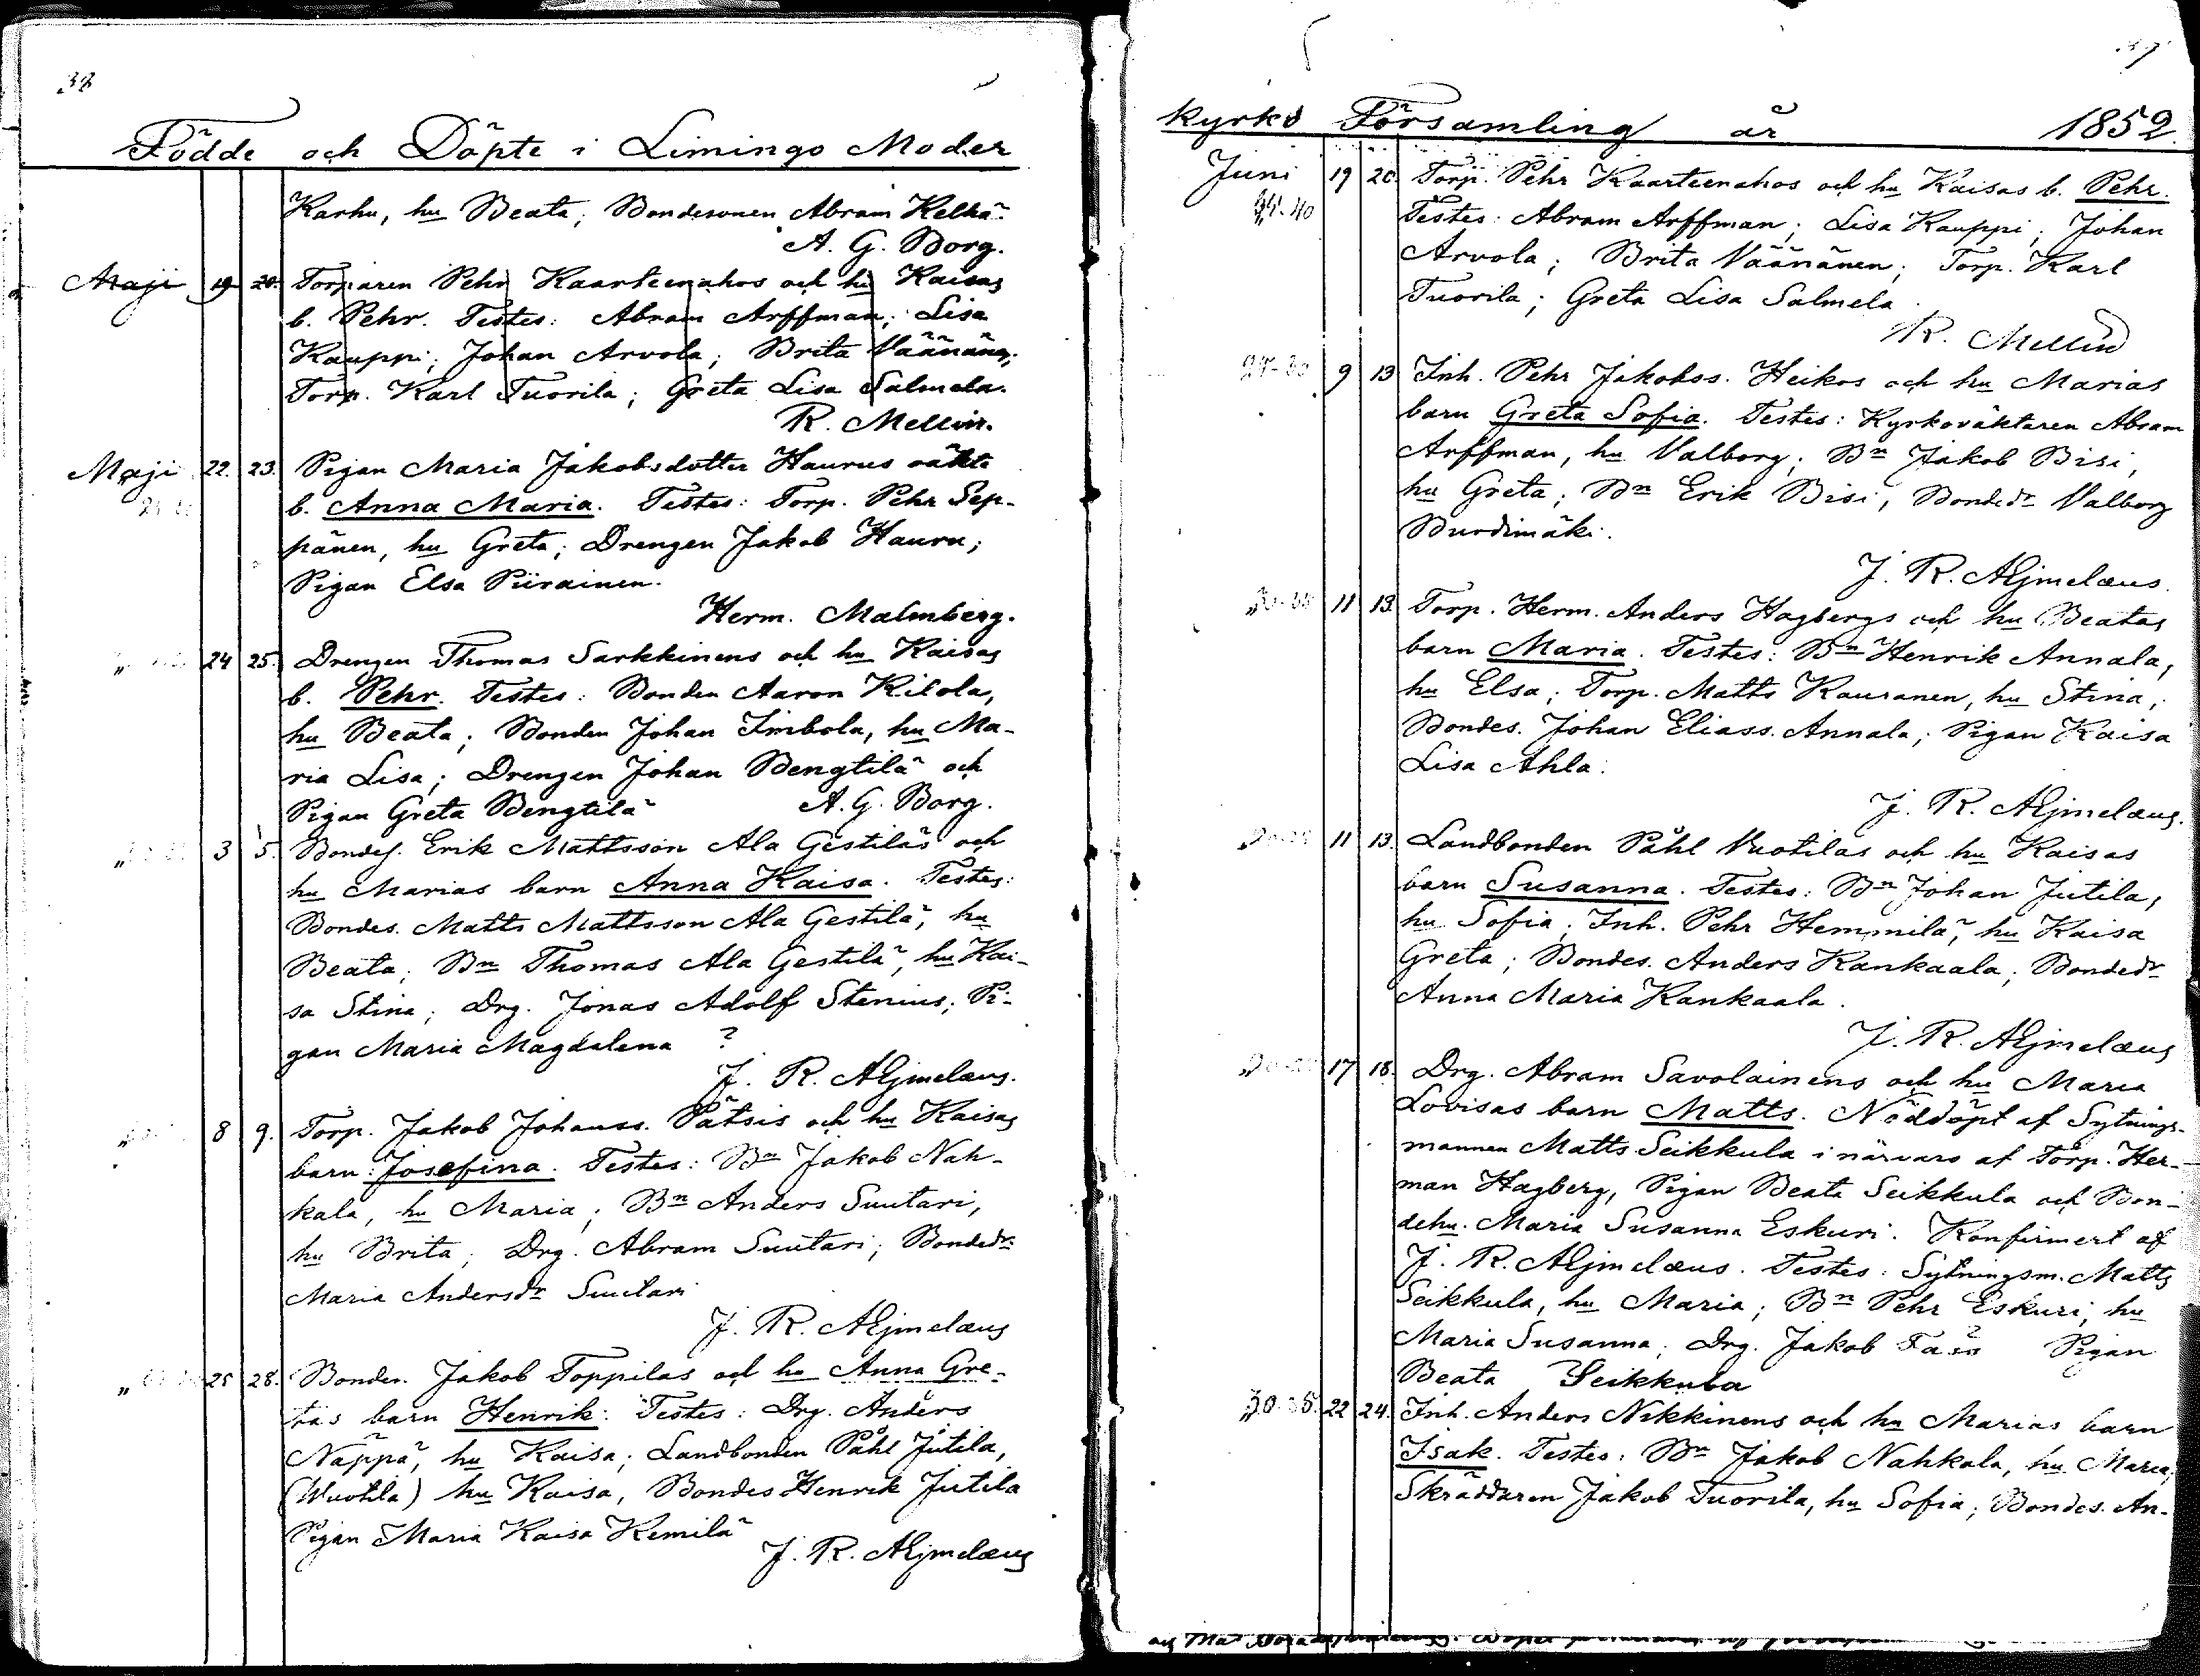 38
Födde och Döpte i Limingo Moder
Karhu, hu Beata; Bondesonen Abram Kelhä.
A. G. Borg.
Maji 19 20. Torparen Pehr Kaarteenahos och hu Kaisas
b. Pehr. Testes: Abram Arffman; Lisa
Kauppi; Johan Arvola; Brita Väänänen;
Torp. Karl Tuorila; Greta Lisa Salmela.
R. Mellin.
Maji 22. 23. Pigan Maria Jakobsdotter Haurus oäkta
b. Anna Maria. Testes: Torp. Pehr Sep-
pänen, hu Greta; Drengen Jakob Hauru;
Pigan Elsa Piirainen.
Herm. Malmberg.
„ 24 25. Drengen Thomas Sarkkinens och hu Kaisas
b. Pehr. Testes: Bonden Aaron Kilola,
hu Beata; Bonden Johan Imbola, hu Ma-
ria Lisa; Drengen Johan Bengtilä och
Pigan Greta Bengtilä A. G. Borg.
„ 3 5. Bondes. Erik Mattsson Ala Gestiläs och
hu Marias barn Anna Kaisa. Testes:
Bondes. Matts Mattsson Ala Gestilä, hu
Beata; Bn Thomas Ala Gestilä, hu Kai-
sa Stina; Drg. Jonas Adolf Stenius; Pi-
gan Maria Magdalena ?
J. R. Aejmelæus.
„ 8 9. Torp. Jakob Johanss. Pätsis och hu Kaisas
barn: Josefina. Testes: Bn Jakob Nah-
kala, hu Maria; Bn Anders Suutari,
hu Brita; Drg. Abram Suutari; Bondedr
Maria Andersdr Suutari
J. R. Aejmelæus
„ 25 28. Bonden Jakob Toppilas och hu Anna Gre-
tas barn Henrik. Testes: Drg. Anders
Näppä, hu Kaisa; Landbonden Påhl Jutila,
(Wuotila) hu Kaisa, Bondes Henrik Jutila
Pigan Maria Kaisa Kemilä
J. R. Aejmelæus
kyrko Församling år 1852.
Juni 19 20. Torp. Pehr Kaarteenahos och hu Kaisas b. Pehr.
Testes: Abram Arffman; Lisa Kauppi; Johan
Arvola; Brita Väänänen; Torp. Karl
Tuorila; Greta Lisa Salmela.
R. Mellin
9 13 Inh. Pehr Jakobss. Heikos och hu Marias
barn Greta Sofia. Testes: Kyrkoväktaren Abram
Arffman, hu Valborg; Bn Jakob Bisi,
hu Greta; Bn Erik Bisi, Bondedr Valborg
Burdimäki.
J. R. Aejmelæus.
„ 11 13. Torp. Herm. Anders Hagbergs och hu Beatas
barn Maria. Testes: Bn Henrik Annala,
hu Elsa; Torp. Matts Kauranen, hu Stina;
Bondes. Johan Eliass. Annala; Pigan Kaisa
Lisa Ahla.
J. R. Aejmelæus.
„ 11 13. Landbonden Påhl Vuotilas och hu Kaisas
barn Susanna. Testes: Bn Johan Jutila,
hu Sofia; Inh. Pehr Hemmilä, hu Kaisa
Greta; Bondes. Anders Kankaala; Bondedr
Anna Maria Kankaala.
J. R. Aejmelæus
„ 17 18. Drg. Abram Savolainens och hu Maria
Lovisas barn Matts. Nöddöpt af Sytnings-
mannen Matts Seikkula i närvaro af Torp. Her-
man Hagberg, Pigan Beata Seikkula och Bon-
dehu. Maria Susanna Eskuri. Konfirmert af
J. R. Aejmelæus. Testes: Sytningsm. Matts
Seikkula, hu Maria; Bn Pehr Eskuri, hu
Maria Susanna; Drg. Jakob Pigan
Beata Seikkula
„30-35. 22 24. Inh. Anders Nikkinens och hu Marias barn
Isak. Testes: Bn Jakob Nahkala, hu Maria;
Skräddaren Jakob Tuorila, hu Sofia; Bondes. An-